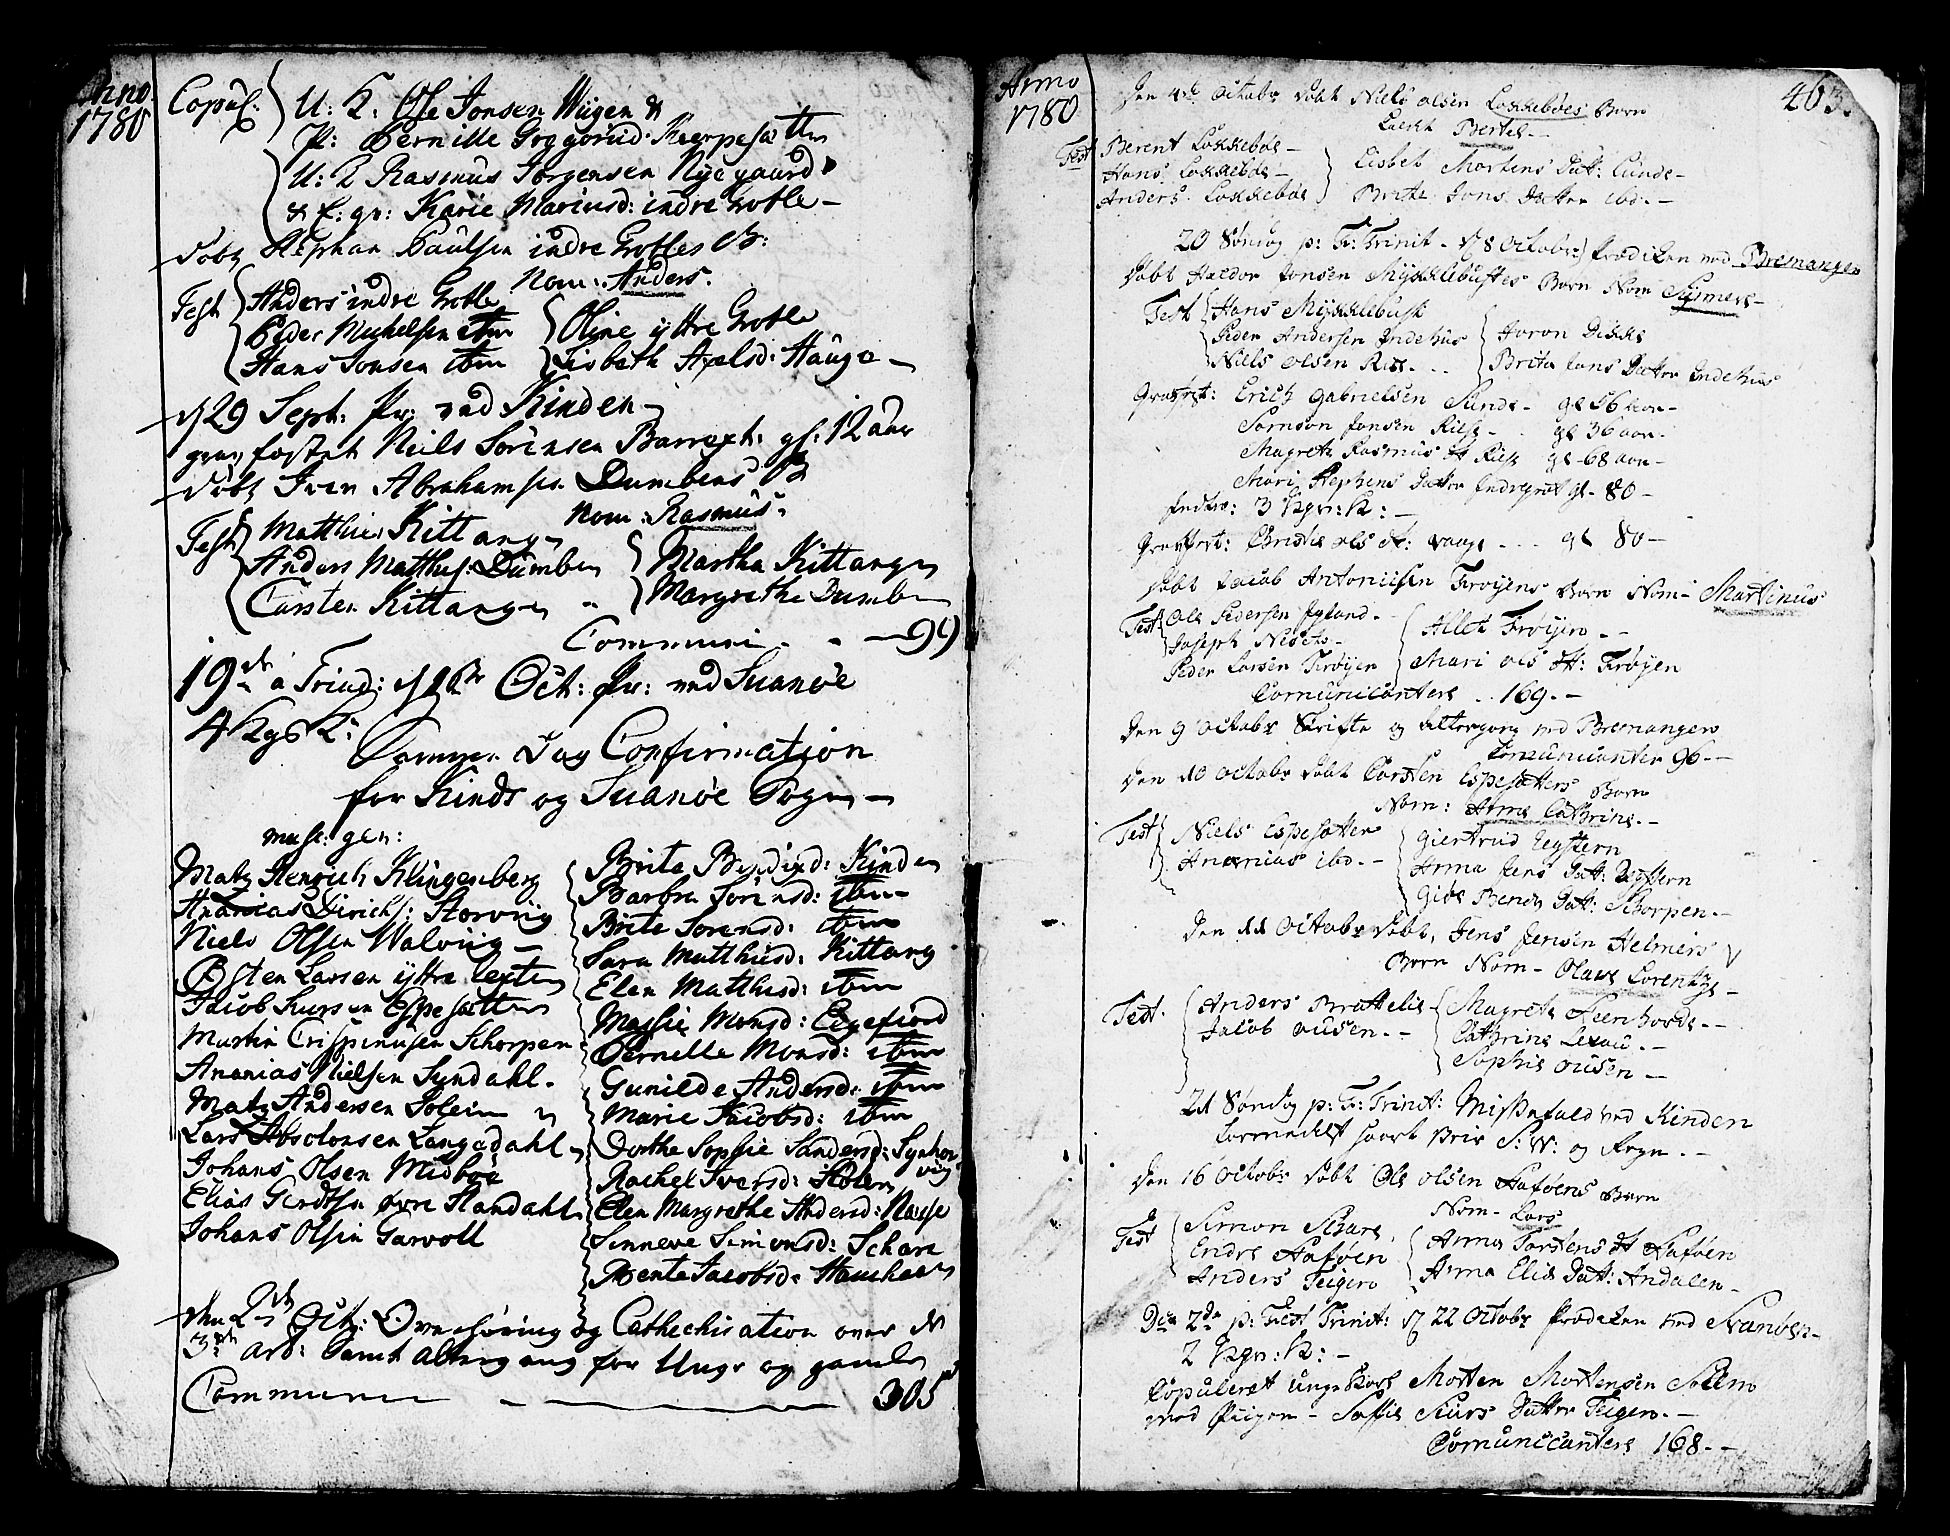 Anno
1780
Copul: U: K. Ole Jonsen Wiigen &
P: Pernille Gregoriid:
U: K Rasmus Jørgensen Nÿegaard
& E: qv: Karie Mariusd: indre Grotle –
døbt Stephan Paulsen indre Grotles B:
Nom: Anders.
Test Anders indre Grotle
Peder Michelsen ibm
Hans Jonsen ibm
Oline ÿttre Grotle
Lisbeth Axelsd: Hauge –
d 29 Sept: Pr: ved Kinden –
græsfæstet Niels Sørensen Barrext: gl: 12 aar
døbt Iver Abrahamsen Dumbens B
Nom: Rasmus.
Test Matthias Kittang
Anders Matthis: Dumben
Carsten Kittangen
Martha Kittangen
Margrethe Dumben
Communi - - 99
19de a Trinit: d 1ste Oct: Pr: ved Suanøe
4 Kgs K:
Samme Dag Confirmation
for Kinds og Suanøe Sogn –
musc: gen:
Matz Henrich Klingenberg
Ananias Dirichs: Storviig
Niels Olsen Walviig –
Østen Larsen ÿttre Lexten
Jacob Siursen Espesætter
Martin Crispinusen Schorpen
Ananias Nielsen Syndahl.
Matz Andersen Solem
Lars Absolonsen Langedahl
Johans Olsen Midbøe
Elias Gerdtsen øvre Standahl
Johans Olsen Garvoll
Brite Bendixd: Kinden
Barbra Sørensd: ibm
Brite Sorensd: ibm
Sara Matthisd: Kittang
Elen Matthisd: ibm
Massie Monsd: Eegefiord
Pernelle Monsd: ibm
Gunilde Andersd: ibm
Marie Jacobsd: ibm
Dorthe Sophie Sandersd:
Rachel Iversd: Stolen
Elen Margrethe Andersd: Nause
Sinneve Simonsd: Schare
Bente Jacobsd:
den 2de Oct: Overhøring og Cathechisation over de
3de art: Samt altergang for Unge og gamle
Communi 305
Anno
1780
463.
Den 4de Octobr døbt Niels Olsen Lokkebøes Barn
kaldt Bertel. –
Test Berent Lokkebøe –
Hans Lokkebøe –
Anders Lokkebøe
Lisbet Mortens Datt: Lunde –
Brite Jons Datter ibd. –
20 Søndag p: F: Trinit – d 8 Octobr: Prædiken ved Bremanger
døbt Haldor Jonsen Mÿkklebustes Barn Nom Synneve –
Test Hans Mÿkklebust
Peder Andersen Indehus
Niels Olsen Rise. . .
Joron Dikke
Brita Jans Datter Indehus
Gravfest: Erich Gabrielsen Sunde – gl 56 aar –
Samson Jonsen Rise – gl 36 aar.
Magrete Rasmus dt Rise gl 68 aar –
Mari Stephens Datter Indregrot gl 80 –
Indtro: 3 Kgn: K: –
Gravfest: Christie Ols dt: Vaage - - - gl 80 –
døbt Jacob Antoniisen Frøyens Barn Nom – Martinus
Test Ole Pedersen Igland. –
Joseph Nesets –
Peder Larsen Frøÿen
Allet Frøÿen. –
Mari Ols dt: Frøÿen
Comunicantere . . 169. –
Den 9 Octobr Skrifte og Altergang ved Bremanger
Comunicanter 96 –
Den 10 Octobr døbt Carsten Espesætters Barn
Nom: Anne Cathrine. –
Test Niels Espesætter
Ananias ibd. –
Giertrud Leÿstern
Anna Jens Datt:
Gide Bendix Datt: Schorpen. –
Den 11 Octobr døbt, Jens Jensen Helmers
Barn Nom – Olave Lorentze –
Test. Anders Brattelie
Jacob Ousen. –
Magrete Steenhovde. –
Cathrine Lexau. –
Sophie Ousen –
21 Søndag p: F: Trinit: Missefald ved Kinden
formedelst haardt Veir S: W: og Regn. –
Den 16 Octobr døbt Ole Olsen Haføens Barn
Nom – Lars
Test Simon Schare
Endre Haføen
Anders Teigen
Anna Torstens dt Haføen
Anna Elis Datt: Andalen –
Die 22de p: Fest Trinit: d 22 Octobr Prædiken ved Svanøen –
2 Kgn: K: –
Copuleret unge Karl Morten Mortensen Solem
med Piigen – Saffie Siurs Datter Teigen. –
Comunicantere 168. –